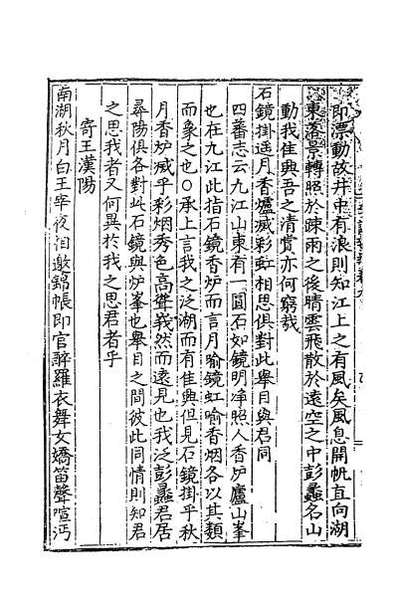 即漂動故井中有浪則知江上之有風矣風息開帆直向湖
東落景轉照於疎雨之後晴雲飛散於遠空之中彭蠡名山
動我佳興吾之清賞亦何窮哉
石鏡掛遥月香爐滅彩虹相思俱對此舉目與君同
四蕃志云九江山東有一圓石如鏡明淨照人香炉廬山峯
也在九江此指石鏡香炉而言月喻鏡虹喻香烟各以其類
而象之也○承上言我之泛湖而有佳興但見石鏡掛乎秋
月香炉滅乎彩烟秀色高聳峩然而遠見也我泛彭蠡君居
尋陽俱各對此石鏡與炉峯也舉目之間彼此同情則知君
之思我者又何異於我之思君者乎
寄王漢陽
南湖秋月白王宰夜相邀錦帳郎官醉羅衣舞女嬌笛聲喧沔